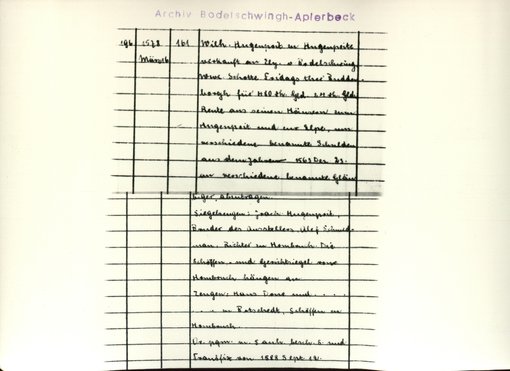 Archiv Bodelschwingh-Aplerbeck
196 1578 161 Wilh. Hugenpoit zu Hugenpoite
März 6 verkauft an Zley. v Bodelschwing
Wwe Schotte Fridags thor Budden-
borgh für 480 th. Geld
Rente aus seinen Häusern zum
Hugenpoit und
verschiedene benannte Schulden
aus dem Jahren 1563 Dez. 23.
an verschiedene benannte Gläu
biger, abzutragen.
Siegelzeugen: Joach. Hugenpoit,
Bruder des Ausstellers, Alef
man, Richter zu Hombruch. Die
Schöffen- und Gerichtsiegel von
Hombruch hängen an
Zeugen: Hans Dove und . . . .
. . . zu Rotschedt, Schöffen zu
Hombruch.
Or. pgm. m. 5 anh. besch. S. und
Transfix von 1588 Sept 12.